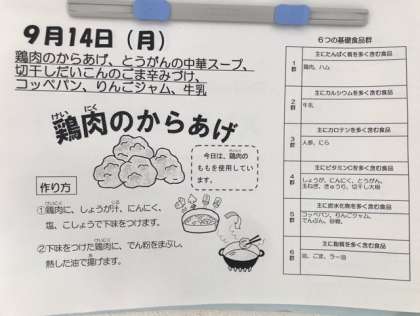 9月14日（月）
鶏肉のからあげ、とうがんの中華スープ、
切干しだいこんのごま辛みづけ、
コッペパン、りんごジャム、牛乳
鶏肉のからあげ
けい にく
今日は、鶏肉の
ももを使用してい
ます。
作り方
①鶏肉に、しょうが汁、にんにく、
塩、こしょうで下味をつけます。
②下味をつけた鶏肉に、でん粉をまぶし、
熱した油で揚げます。
６つの基礎食品群
主にたんぱく質を多く含む食品
1群
鶏肉、ハム
主にカルシウムを多く含む食品
2群
牛乳
主にカロテンを多く含む食品
3群
人参、にら
主にビタミンCを多く含む食品
4群
しょうが、にんにく、とうがん、
玉ねぎ、きゅうり、切干し大根
主に炭水化物を多く含む食品
5群
コッペパン、りんごジャム、
でんぷん、砂糖、
主に脂質を多く含む食品
6群
油、ごま、ラー油